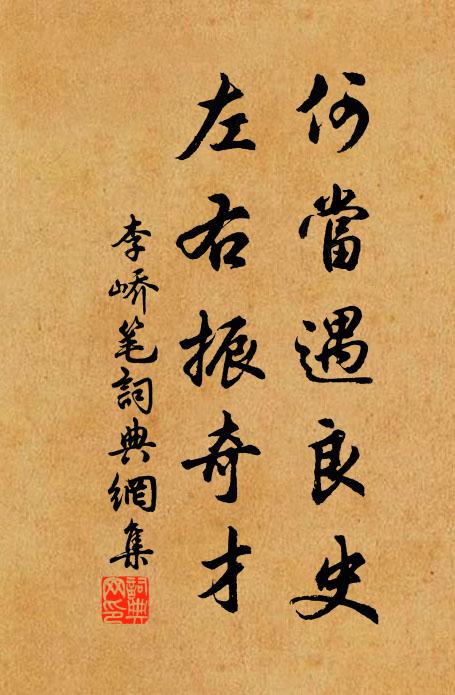 何當遇良史
左右振奇才
李峤笔詞典網集
詞典網印